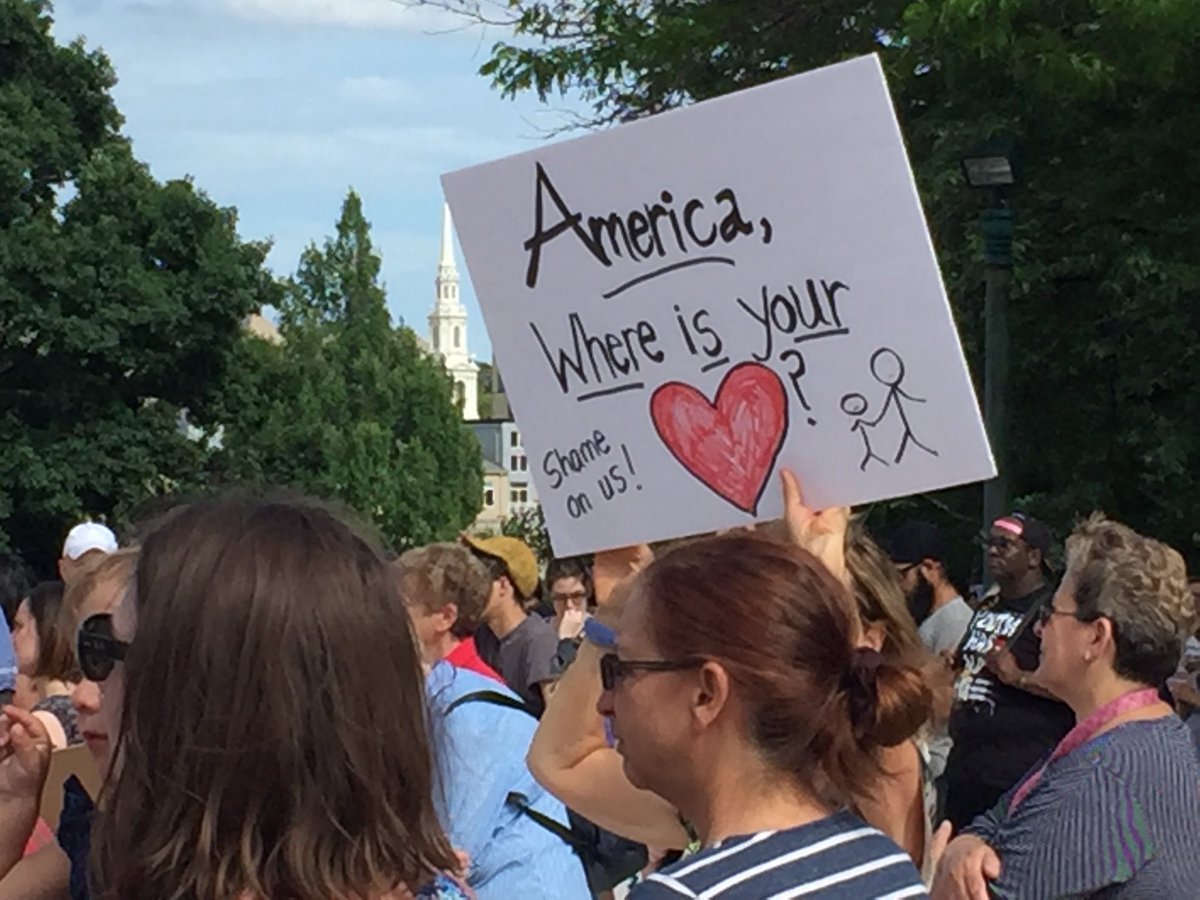 America,
Where is your
?
Shame
on us!